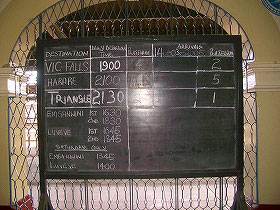 DESTINATION DAILY DEPARTURE TIME PLATFORM 14 - 03 ARRIVALS PLATFORM
VIC FALLS 1900 2
HARARE 2100 5
TRIANGLE 2130 1
EMGANWINI 1ST 1630
2ND 1830
LUVEVE 1ST 1645
2ND 1845
SATURDAY ONLY
EMGANWINI 1345
LUVEVE 1400